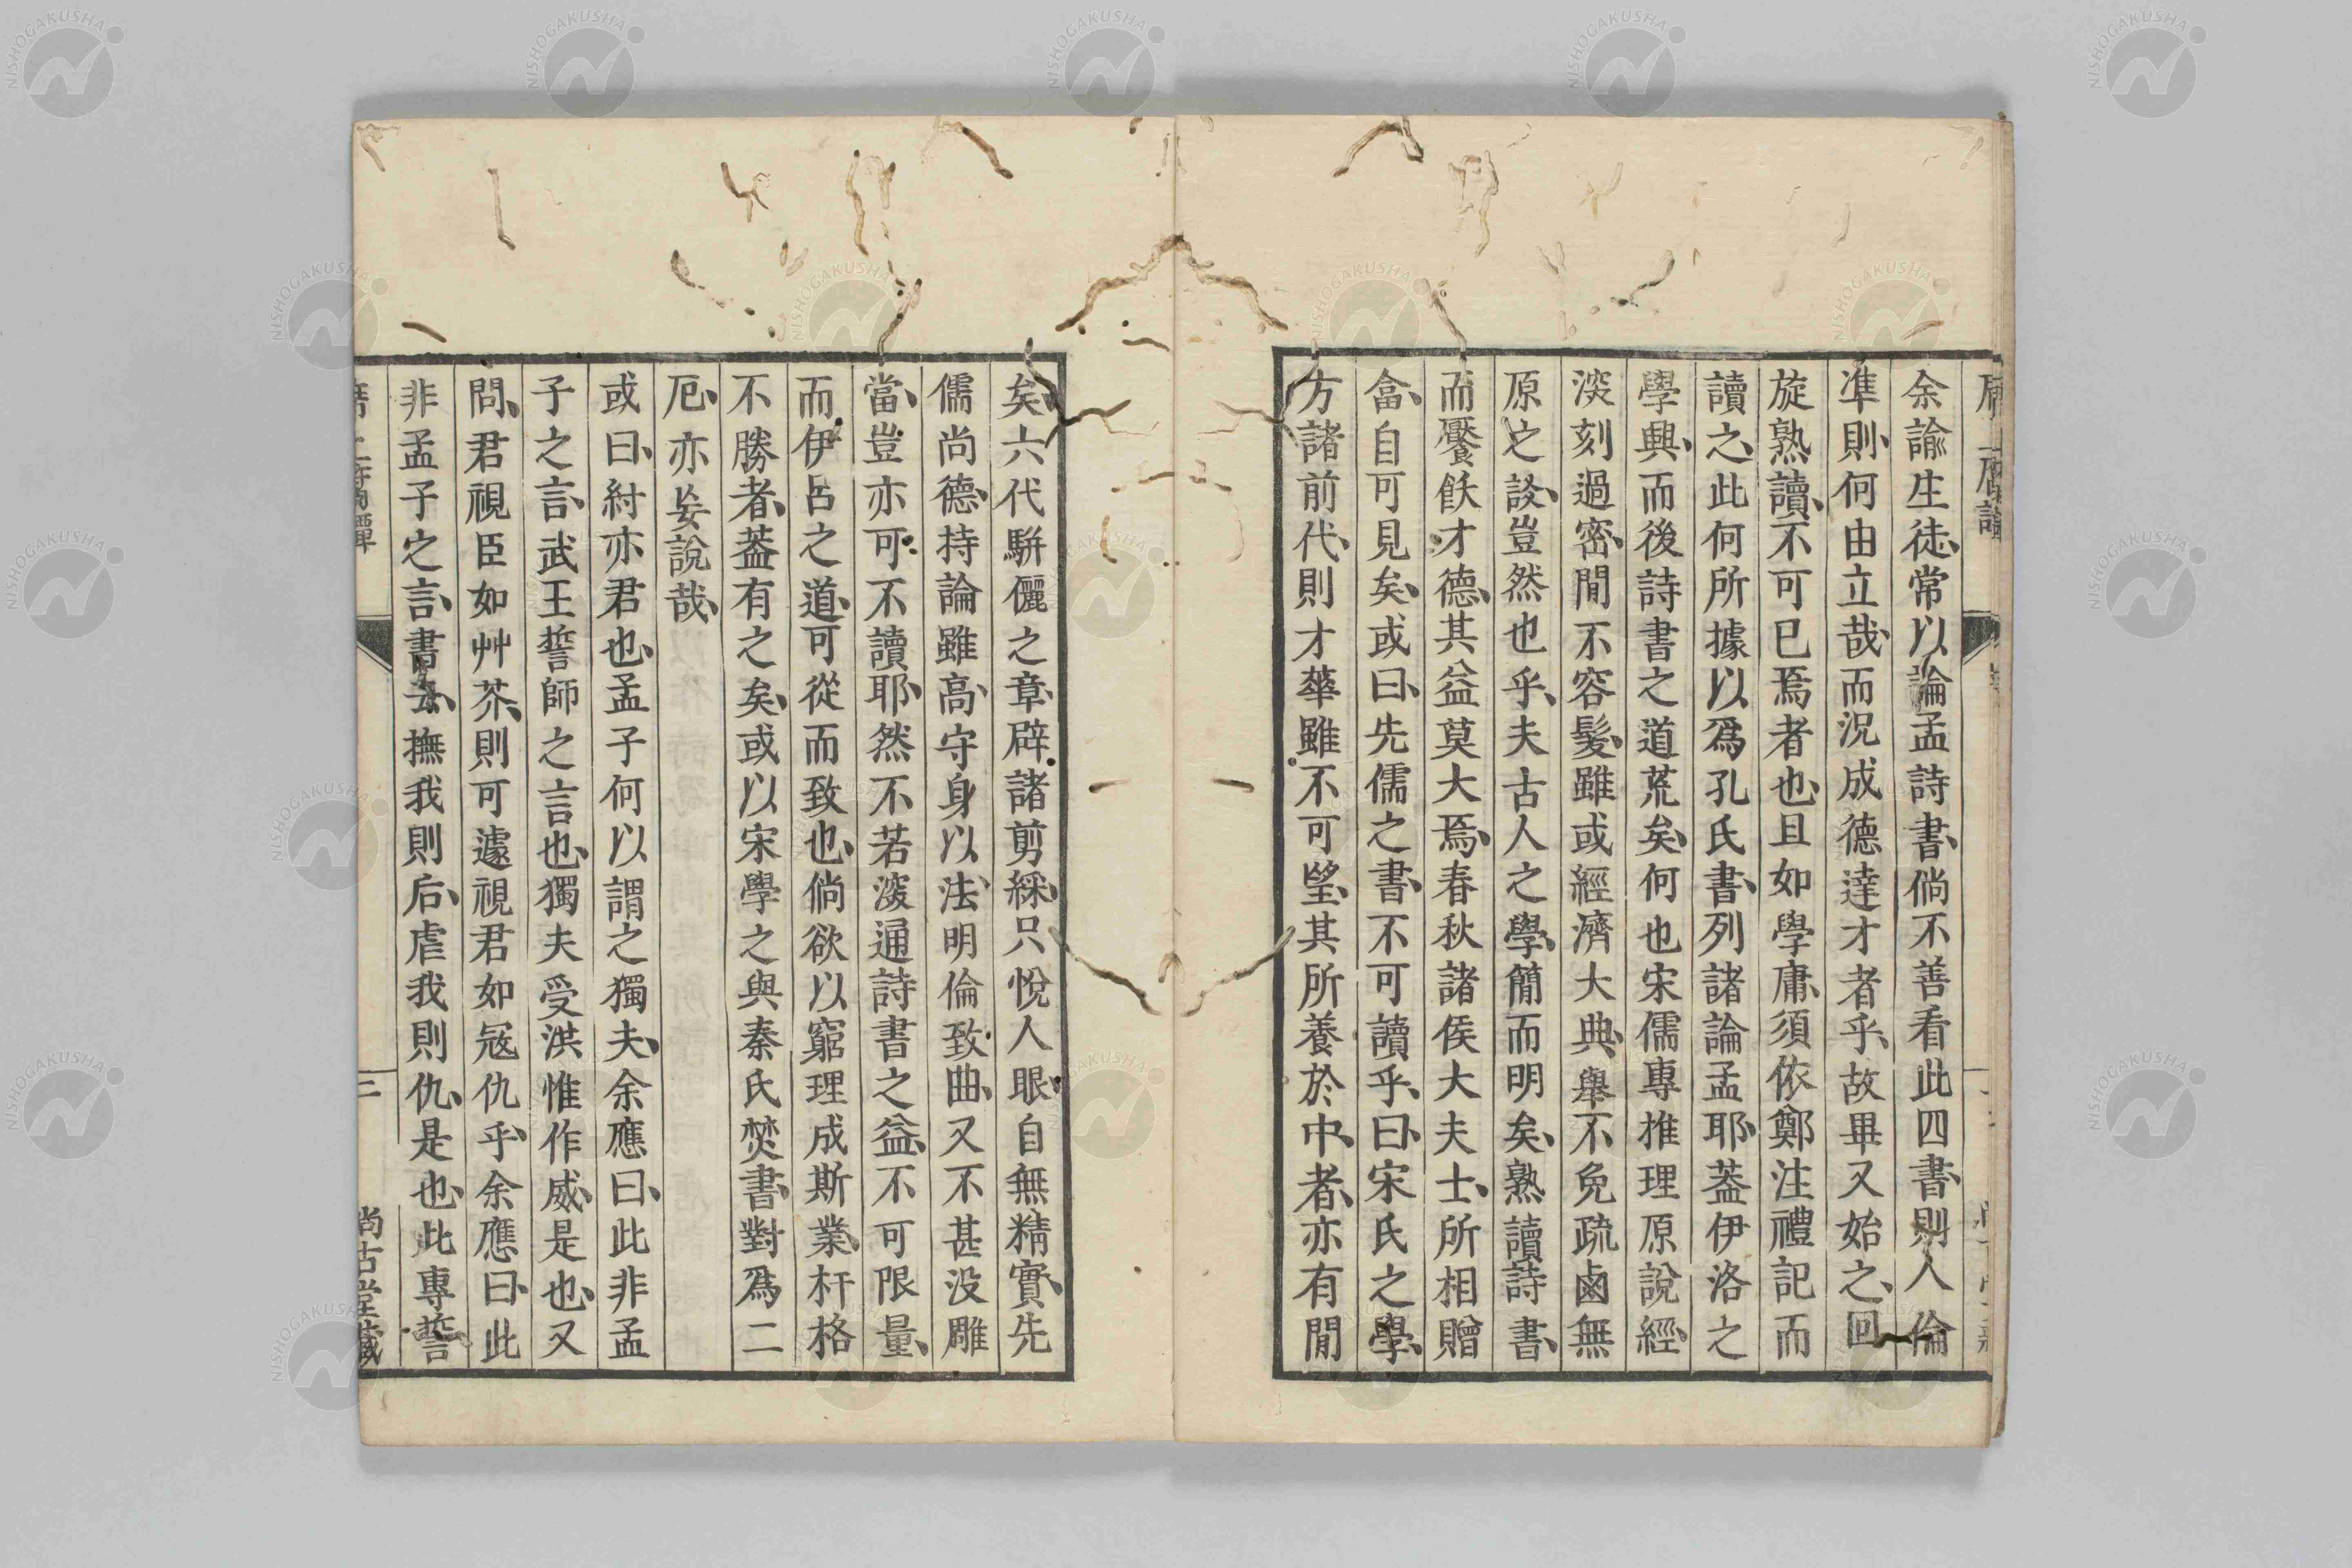 余諭生徒、常以論孟詩書、倘不善看此四書、則人倫
準則、何由立哉、而況成德達才者乎、故畢又始之、回
旋熟讀、不可已焉者也、且如學庸、須依鄭注禮記而
讀之、此何所據以爲孔氏書、列諸論孟耶、蓋伊洛之
學興、而後詩書之道荒矣、何也宋儒專推理原說經、
深刻過密、間不容髮、雖或經濟大典、舉不免疏鹵無
原之談、豈然也乎、夫古人之學、簡而明矣、熟讀詩書、
而饜飫才德、其益莫大焉、春秋諸侯大夫士、所相贈
畣、自可見矣、或曰、先儒之書、不可讀乎、曰、宋氏之學、
方諸前代、則才華雖不可望、其所養於中者、亦有間
矣、六代駢儷之章、辟諸剪綵、只悅人眼、自無精實、先
儒尚德、持論雖高、守身以法、明倫致曲、又不甚没雕
當、豈亦可不讀耶、然不若深通詩書之益、不可限量、
而伊呂之道、可從而致也、倘欲以窮理成斯業、杆格
不勝者、蓋有之矣、或以宋學之與秦氏焚書、對爲二
厄、亦妄說哉、
或曰、紂亦君也、孟子何以謂之獨夫、余應曰、此非孟
子之言、武王誓師之言也、獨夫受洪惟作威、是也、又
問、君視臣如艸芥、則可遽視君如寇仇乎、余應曰、此
非孟子之言、書云、撫我則后、虐我則仇、是也、此專誓
三
尚古堂藏
NISHOGAKUSHA